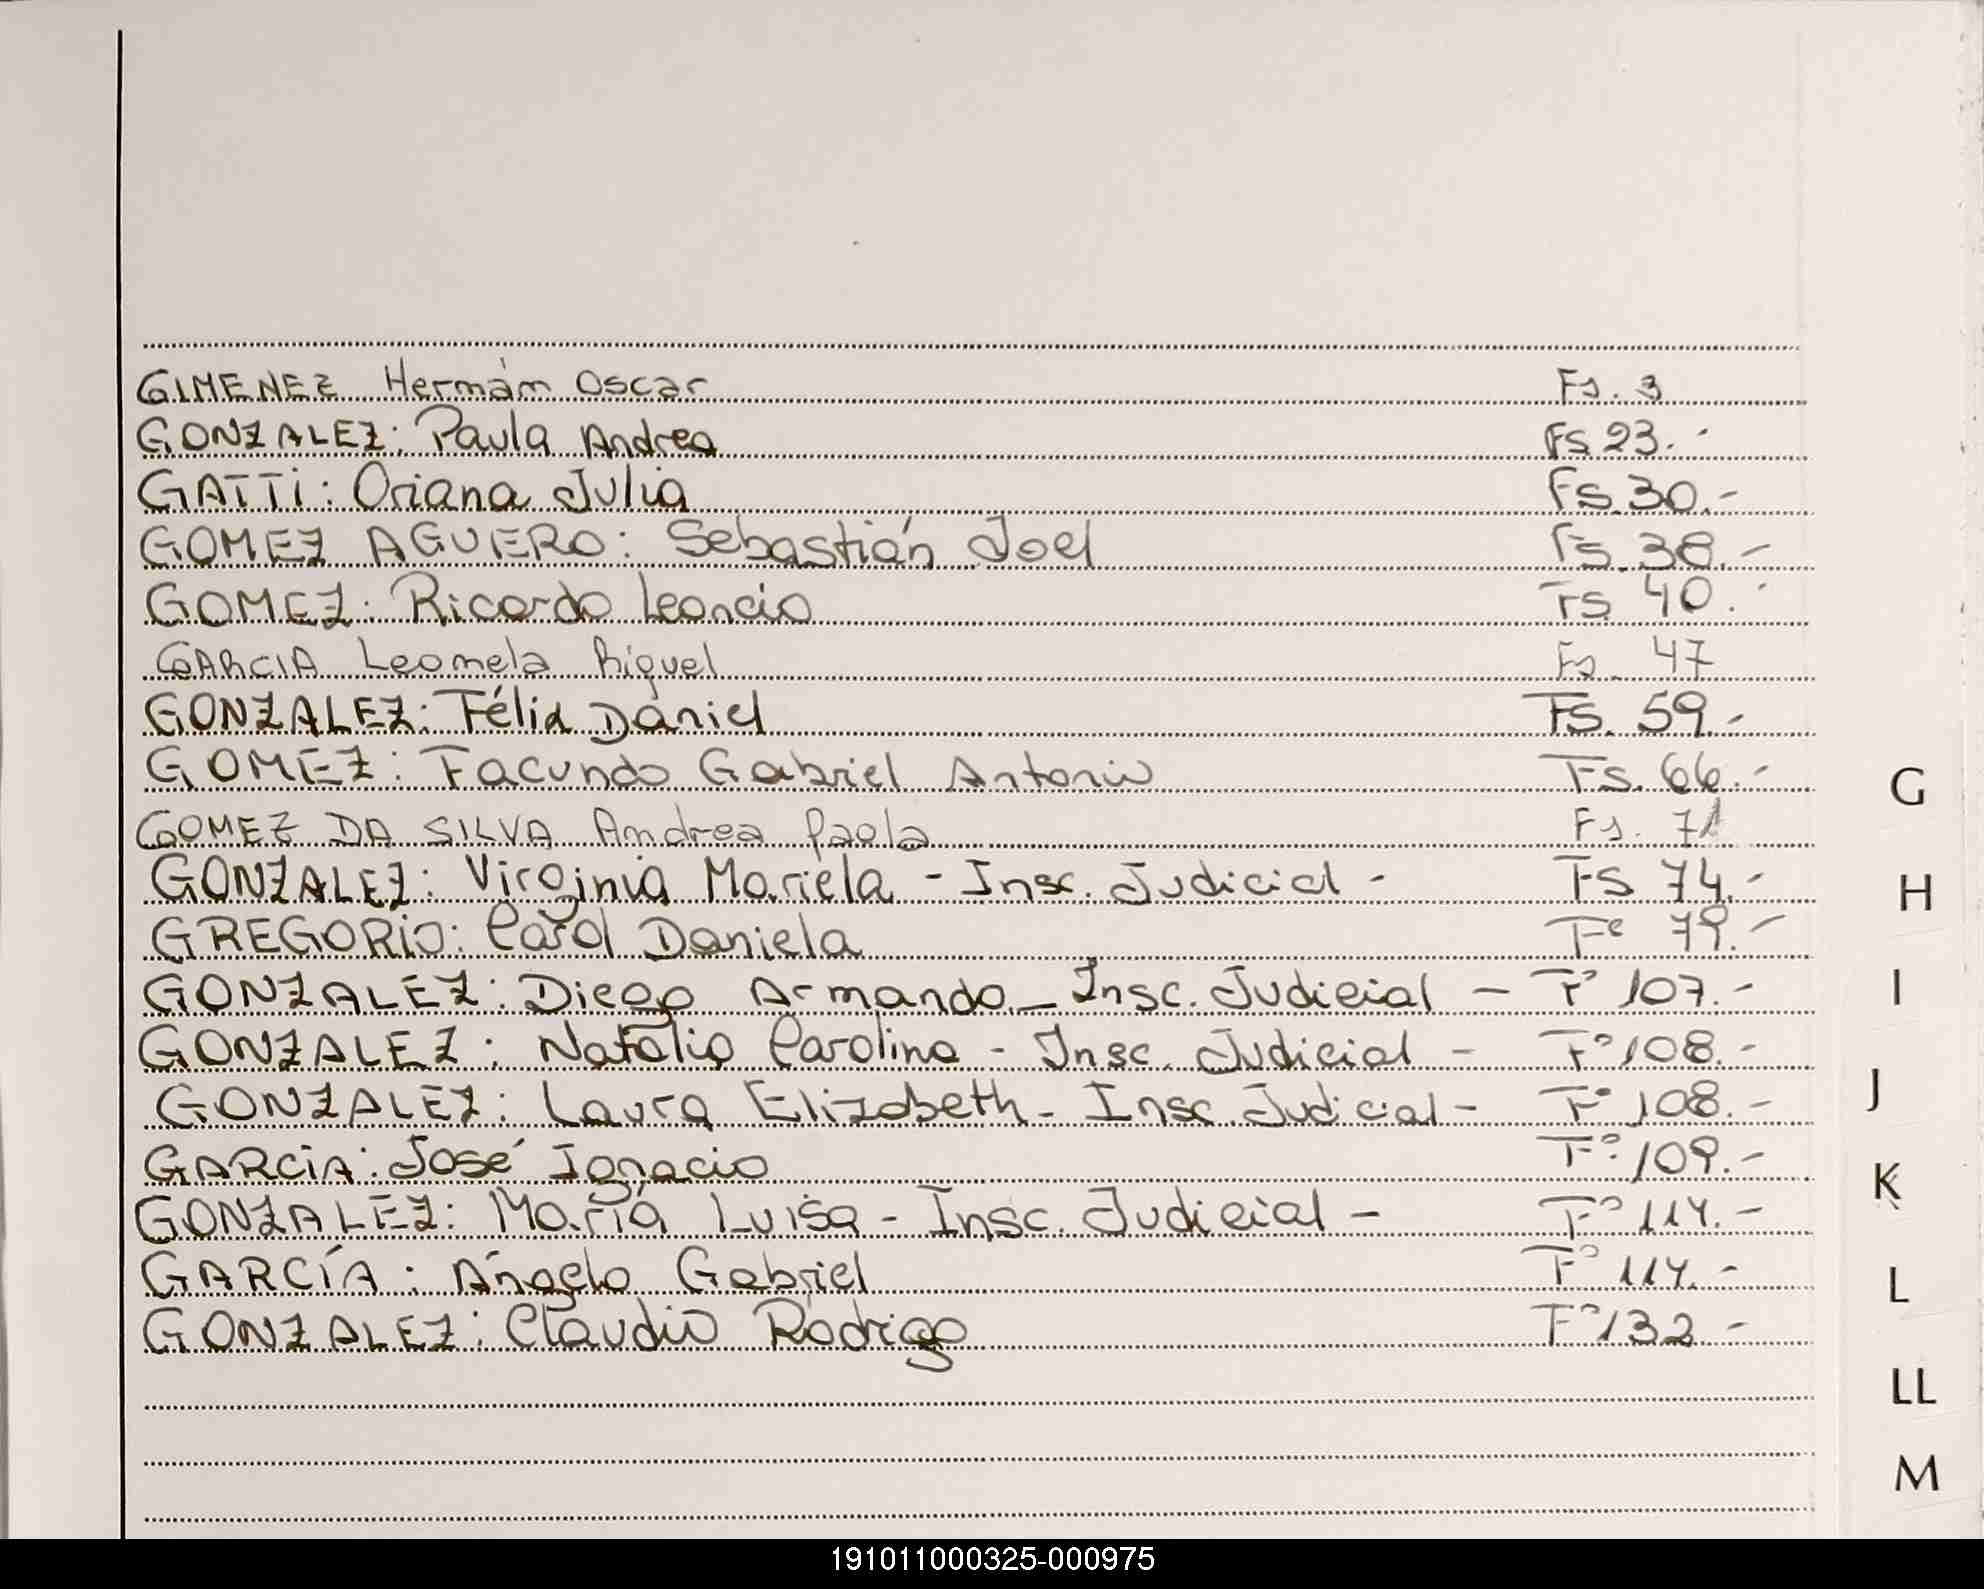 GIMENEZ Hernán Oscar Fs. 3
GONZALEZ: Paula Andrea Fs 23.-
GATTi: Oriana Julia Fs. 30.-
GOMEZ AGUERO: Sebastián Joel Fs. 38.-
GOMEZ: Ricardo Leoncio Fs. 40.-
GARCIA Leonela Riquel Fs. 47
GONZALEZ: Félix Daniel Fs. 59.-
GOMEZ: Facundo Gabriel Antonio Fs. 66.-
GOMEZ DA SILVA Andrea Paola Fs. 71
GONZALEZ: Virginia Mariela - Insc. Judicial - Fs 74.-
GREGORiO: Carol Daniela Fº 79.-
GONZALEZ: Diego Armando - Insc. Judicial - Fº 107.-
GONZALEZ: Natalia Carolina - Insc. Judicial - Fº 108.-
GONZALEZ: Laura Elizabeth - Insc. Judicial - Fº 108.-
GARCiA: José Ignacio Fº 109.-
GONZALEZ: María Luisa - Insc. Judicial - Fº 114.-
GARCÍA: Ángelo Gabriel Fº 114.-
GONZALEZ: Claudio Rodrigo Fº 132-
G
H
I
J
K
L
LL
M
191011000325-000975